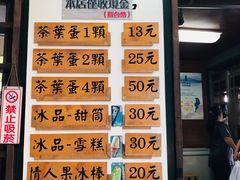 本店僅收現金,
(新台幣)
茶葉蛋1顆 13元
茶葉蛋2顆 25元
茶葉蛋4顆 50元
冰品-甜筒 30元
冰品-雪糕 30元
情人果冰棒 20元
禁止吸菸